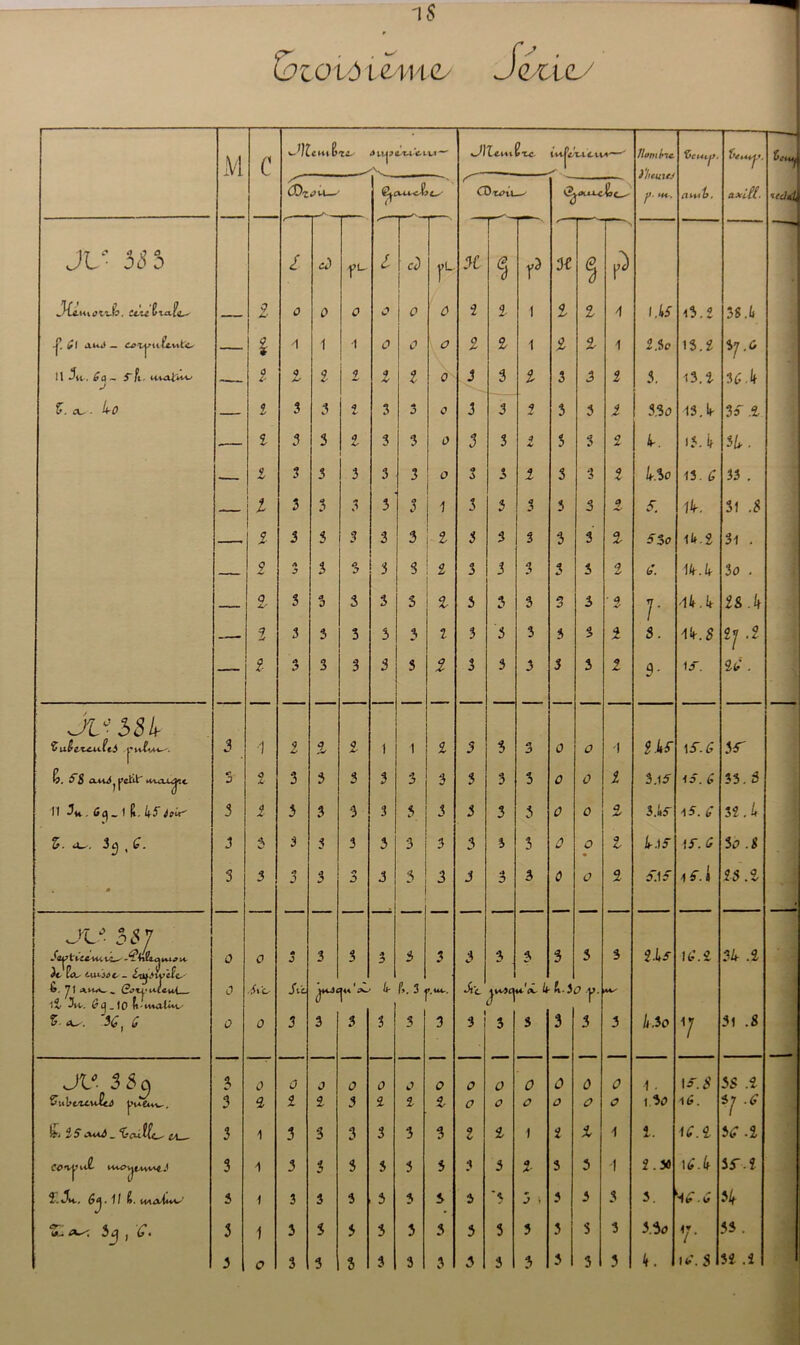 18
Troisième Série
M C Membre supérieur Membre inférieur Nombre d'heures p. m. Temp. amb. Temp. axill.
Droit Gauche Droit Gauche
N° 383
Hémorrh. cérébrale
f. 61 ans — corpulente — 2 0 0 0 0 0 0 2 2 1 2 2 1 1.45 13.2 38.4
— 2 1 1 1 0 0 0 2 2 1 2 2 1 2.30 13.2 37.6
11 Ju. 69 — 5 h. matin — 2 2 2 2 2 2 0 3 3 2 3 3 2 3. 13.2 36.4
T. a. 40 — 2 3 3 2 3 3 0 3 3 2 3 3 2 3.30 13.4 35.2
— 2 3 3 2 3 3 0 3 3 2 3 3 2 4. 13.4 34.
— 2 3 3 3 3 3 0 3 3 2 3 3 2 4.30 13.6 33.
— 2 3 3 3 3 3 1 3 3 3 3 3 2 5. 14. 31.8
— 2 3 3 3 3 3 2 3 3 3 3 3 2 5.30 14.2 31.
— 2 3 3 3 3 3 2 3 3 3 3 3 2 6. 14.4 30.
— 2 3 3 3 3 3 2 3 3 3 3 3 2 7. 14.4 28.4
— 2 3 3 3 3 3 2 3 3 3 3 3 2 8. 14.8 27.2
— 2 3 3 3 3 3 2 3 3 3 3 3 2 9. 15. 26.
N° 384
Tubercules pulm. 3 1 2 2 2 1 1 2 3 3 3 0 0 1 2.45 15.6 35
h. 58 ans, petit maigre 3 2 3 3 3 3 3 3 3 3 3 0 0 2 3.15 15.6 33.8
11 Ju. 69 — 1 h. 45 soir 3 2 3 3 3 3 3 3 3 3 3 0 0 2 3.45 15.6 32.4
T. a. 39,6. 3 3 3 3 3 3 3 3 3 3 3 0 0 2 4.15 15.6 30.8
3 3 3 3 3 3 3 3 3 3 3 0 0 2 5.15 15.4 28.2
N° 387
Septicémie — Phlegmon 0 0 3 3 3 3 3 3 3 3 3 3 3 3 2.45 16.2 34.2
de la cuisse — Erysipèle
h. 71 ans — Corpulent — 0 Sic Sic jusqu'à 4 h. 3 p.m. Sic jusqu'à 4 h. 30 p. m
12 Ju. 69 — 10 h. matin
T. a. 36,6 0 0 3 3 3 3 3 3 3 3 3 3 3 3 4.30 17 31.8
N° 389 3 0 0 0 0 0 0 0 0 0 0 0 0 0 1. 15.8 38.2
Tubercules pulm. 3 2 2 2 3 2 2 2 0 0 0 0 0 0 1.30 16. 37.6
h. 25 ans — Taille et 3 1 3 3 3 3 3 3 2 2 1 2 2 1 2. 16.2 36.2
corpul moyennes 3 1 3 3 3 3 3 3 3 3 2 3 3 1 2.30 16.4 35.2
2. Ju. 69. 11 h. matin 3 1 3 3 3 3 3 3 3 3 3 3 3 3 3. 16.6 34
T. a. 39,6. 3 1 3 3 3 3 3 3 3 3 3 3 3 3 3.30 17. 33.
3 0 3 3 3 3 3 3 3 3 3 3 3 3 4. 16.8 32.2